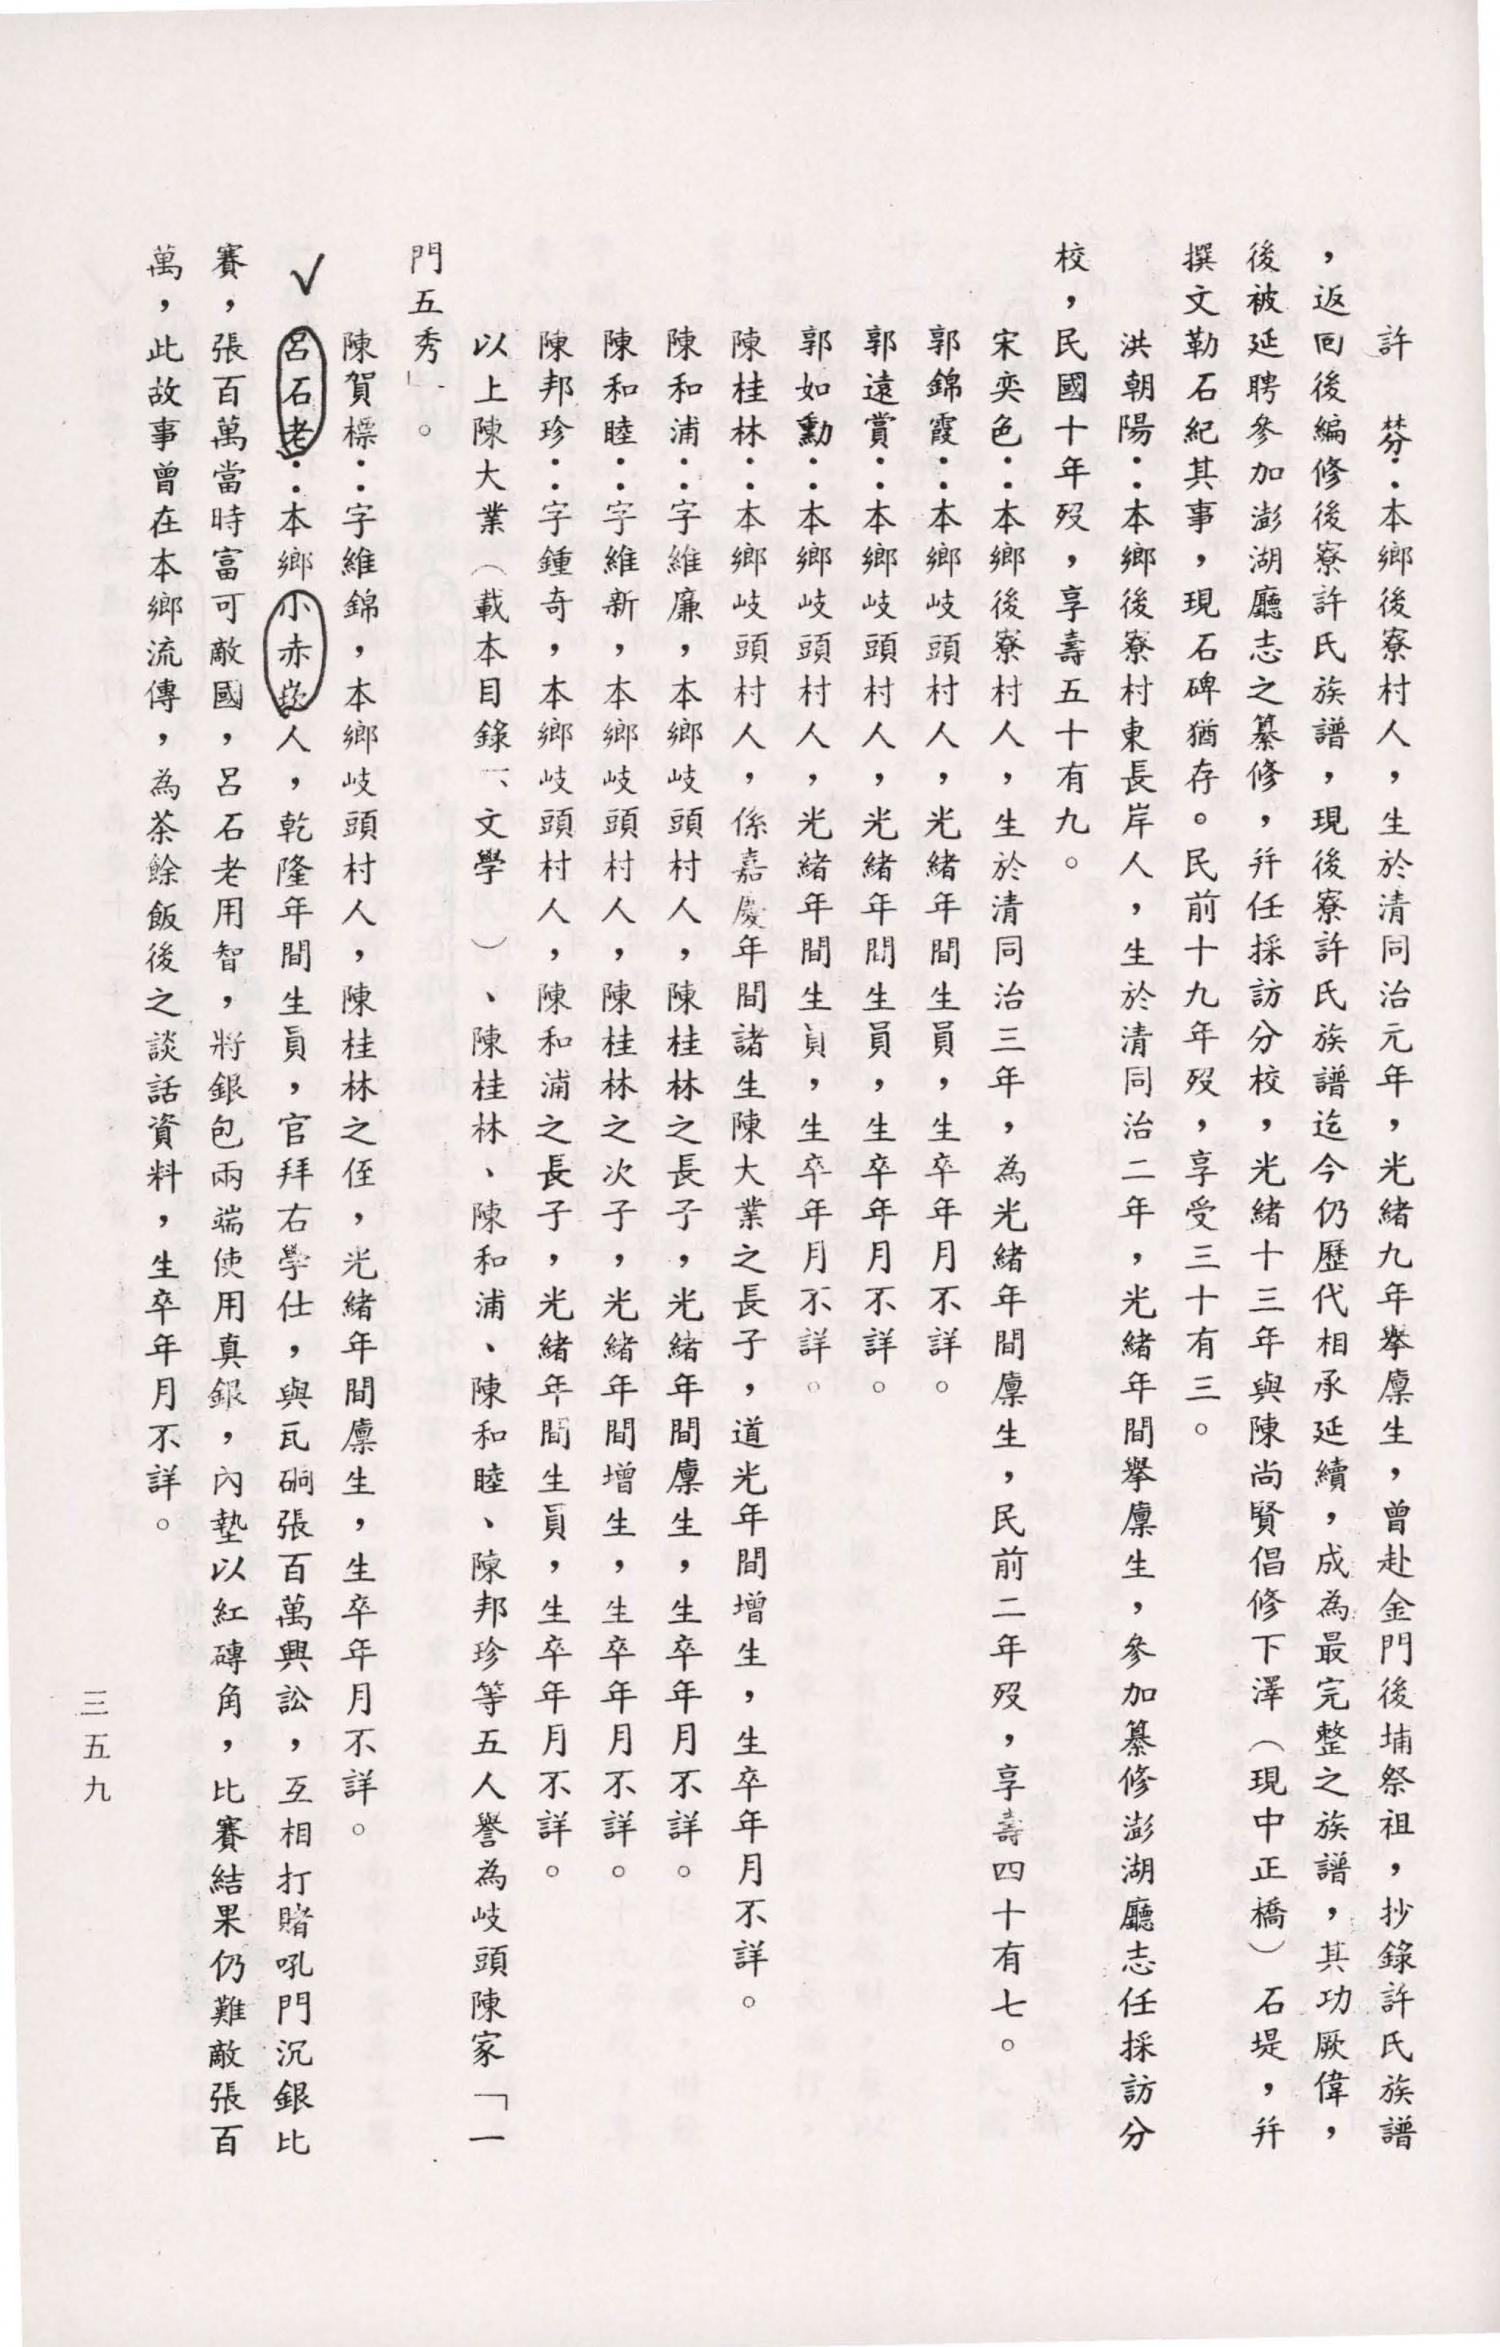 許　棼：本鄉後寮村人，生於清同治元年，光緒九年舉廩生，曾赴金門後埔祭祖，抄錄許氏族譜
，返回後編修後寮許氏族譜，現後寮許氏族譜迄今仍歷代相承延續，成為最完整之族譜，其功厥偉，
後被延聘參加澎湖廳志之纂修，幷任採訪分校，光緒十三年與陳尚賢倡修下澤（現中正橋）石堤，幷
撰文勒石紀其事，現石碑猶存。民前十九年歿，享受三十有三。
洪朝陽：本鄉後寮村東長岸人，生於清同治二年，光緒年間舉廩生，參加纂修澎湖廳志任採訪分
校，民國十年歿，享壽五十有九。
宋奕色：本鄉後寮村人，生於清同治三年，為光緒年間廩生，民前二年歿，享壽四十有七。
郭錦霞：本鄉岐頭村人，光緒年間生員，生卒年月不詳。
郭遠賞：本鄉岐頭村人，光緒年間生員，生卒年月不詳。
郭如勳：本鄉岐頭村人，光緒年間生員，生卒年月不詳。
陳桂林：本鄉岐頭村人，係嘉慶年間諸生陳大業之長子，道光年間增生，生卒年月不詳。
陳和浦：字維廉，本鄉岐頭村人，陳桂林之長子，光緒年間廩生，生卒年月不詳。
陳和睦：字維新，本鄉岐頭村人，陳桂林之次子，光緒年間增生，生卒年月不詳。
陳邦珍：字鍾奇，本鄉岐頭村人，陳和浦之長子，光緒年間生員，生卒年月不詳。
以上陳大業（載本目錄一、文學）、陳桂林、陳和浦、陳和睦、陳邦珍等五人譽為岐頭陳家「一
門五秀」。
陳賀標：字維錦，本鄉岐頭村人，陳桂林之侄，光緒年間廩生，生卒年月不詳。
呂石老：本鄉小赤崁人，乾隆年間生員，官拜右學仕，與瓦硐張百萬興訟，互相打賭吼門沉銀比
賽，張百萬當時富可敵國，呂石老用智，將銀包兩端使用真銀，內墊以紅磚角，比賽結果仍難敵張百
萬，此故事曾在本鄉流傳，為茶餘飯後之談話資料，生卒年月不詳。
三五九